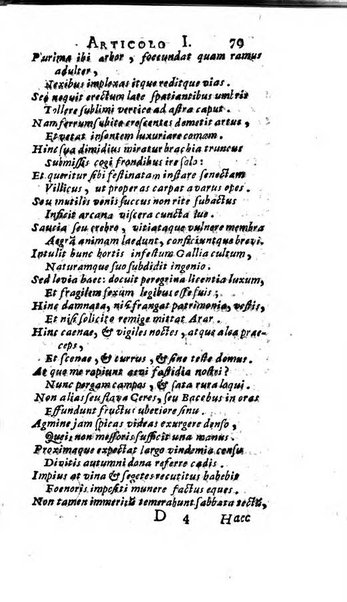 ARTICOLO I. 79
Purima ibi arbor, foecundat quam ramus
adulter,
Nexibus implexas itque reditque vias.
Sed nequit erectum late spatiantibus umbris
Tollere sublimi vertice ad astra caput.
Nam ferrum subito crescentes demetit artus,
Et vetat insontem luxuriare comam.
Hinc sua dimidius miratur brachia truncus
Submissis cogi frondibus ire solo:
Et queritur sibi festinatam instare senectam
Villicus, ut properas carpat avarus opes.
Seu mutili venis succus non rite subactus
Inficit arcana viscera cuncta lue.
Saucia seu crebro, vitiataque vulnere membra
Aegrā animam laedunt, conficiuntque brevi.
Intulit hunc hortis infestum Gallia cultum,
Naturamque suo subdidit ingenio.
Sed levia haec: docuit peregrina licentia luxum,
Et fragilem sexum legibus esse suis;
Hinc damnata, nisi frangat patrimonia, vestis,
Et nisi solicite remige mittat Arar.
Hinc caenae, & vigiles noctes, atque alea prae-
ceps,
Et scenae, & currus, & sine teste domus.
At que me rapiunt aevi fastidia nostri?
Nunc pergam campos, & sata rura loqui.
Non alias seu flava Ceres, seu Bacchus in oras
Effundunt fructus uberiore sinu.
Agmine jam spicas videas exurgere denso,
Quei, non messoris sufficit una manus.
Proximaque expectat largo vindemia censu
Divitis autumni dona referre cadis.
Impius at vina & segetes recutitus habebit
Foenoris impositi munere factus eques.
Non tamen immeritò temerabunt sabbata sectū,
D 4 Haec